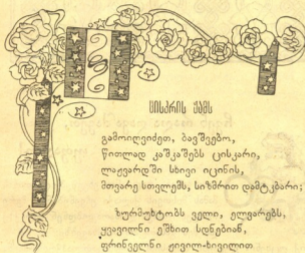 ცისკრის ჟამს
გამოიღვიძეთ, ბავშვებო,
წითლად კაშკაშებს ცისკარი,
ლაჟვარდში სხივი იცინის,
მთვარე სთვლემს, სიზმრით დამტკბარი;
ზურმუხტობს ველი, ელვარებს,
ყვავილნი ეშხით სდნებიან,
ფრინველნი ჟივილ-ხივილით